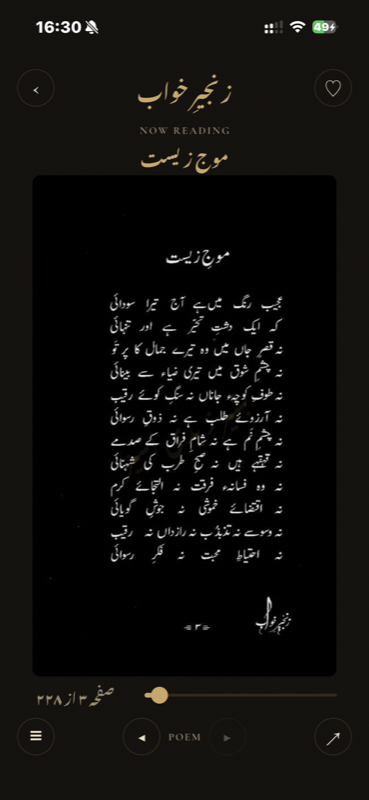 16:30
49
زنجیرِ خواب
NOW READING
موج زیست
موجِ زیست
عجیب رنگ میں ہے آج تیرا سودائی
کہ ایک دشتِ تحیّر ہے اور تنہائی
نہ قصرِ جاں میں وہ تیرے جمال کا پرتَو
نہ چشمِ شوق میں تیری ضیاء سے بینائی
نہ طوفِ کوچہء جاناں نہ سنگِ کوئے رقیب
نہ آرزوئے طلب ہے نہ ذوقِ رسوائی
نہ چشمِ نم ہے نہ شامِ فراق کے صدمے
نہ قہقہے ہیں نہ صبحِ طرب کی شہنائی
نہ وہ فسانہء فرقت نہ التجائے کرم
نہ اقتضائے خموشی نہ جوشِ گویائی
نہ وسوسے نہ تذبذب نہ رازداں نہ رقیب
نہ احتیاطِ محبت نہ فکرِ رسوائی
زنجیرِ خواب
۳
صفحہ ۳ از ۲۲۸
POEM